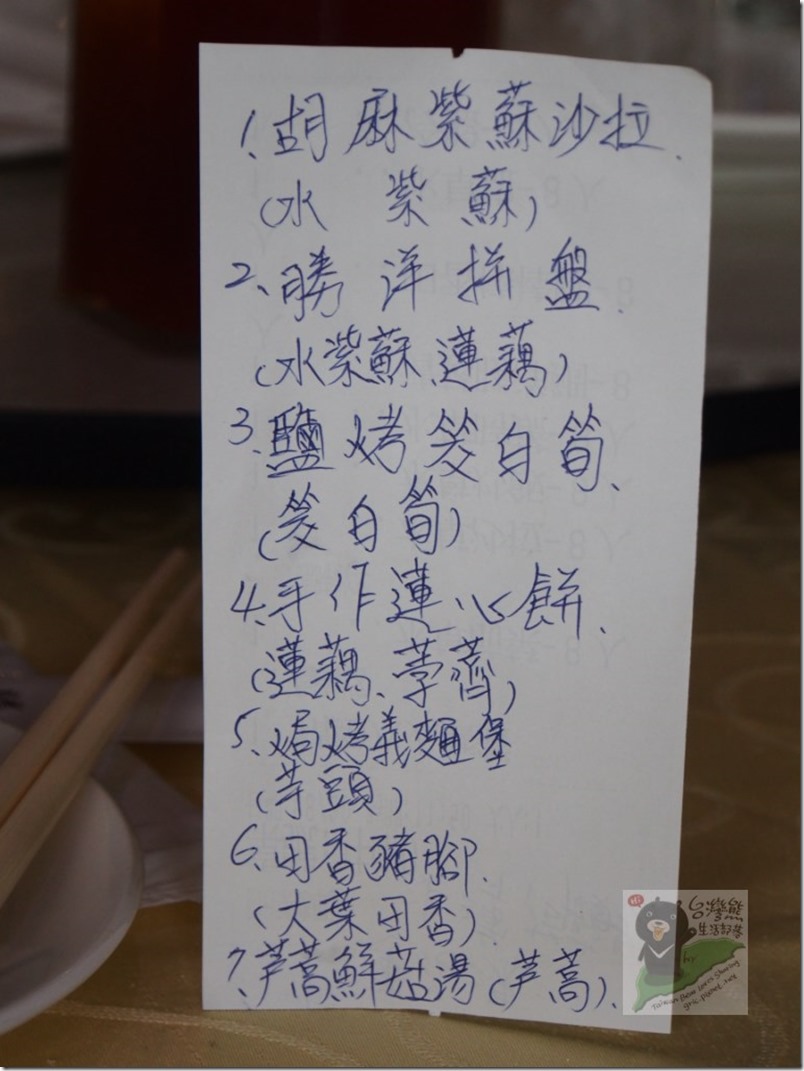 1. 胡麻紫蘇沙拉.
(水紫蘇)
2、勝洋拼盤.
(水紫蘇、蓮藕)
3、鹽烤茭白筍、
(茭白筍)
4、手作蓮心餅、
(蓮藕、荸薺)
5、焗烤義麵堡
(芋頭)
6、田香豬腳.
(大葉田香)
7、芦蒿鮮菇湯(芦蒿).
Hi
台灣熊
生活部落
by
Taiwan Bear Loves Sharing
gric.pixnet.net